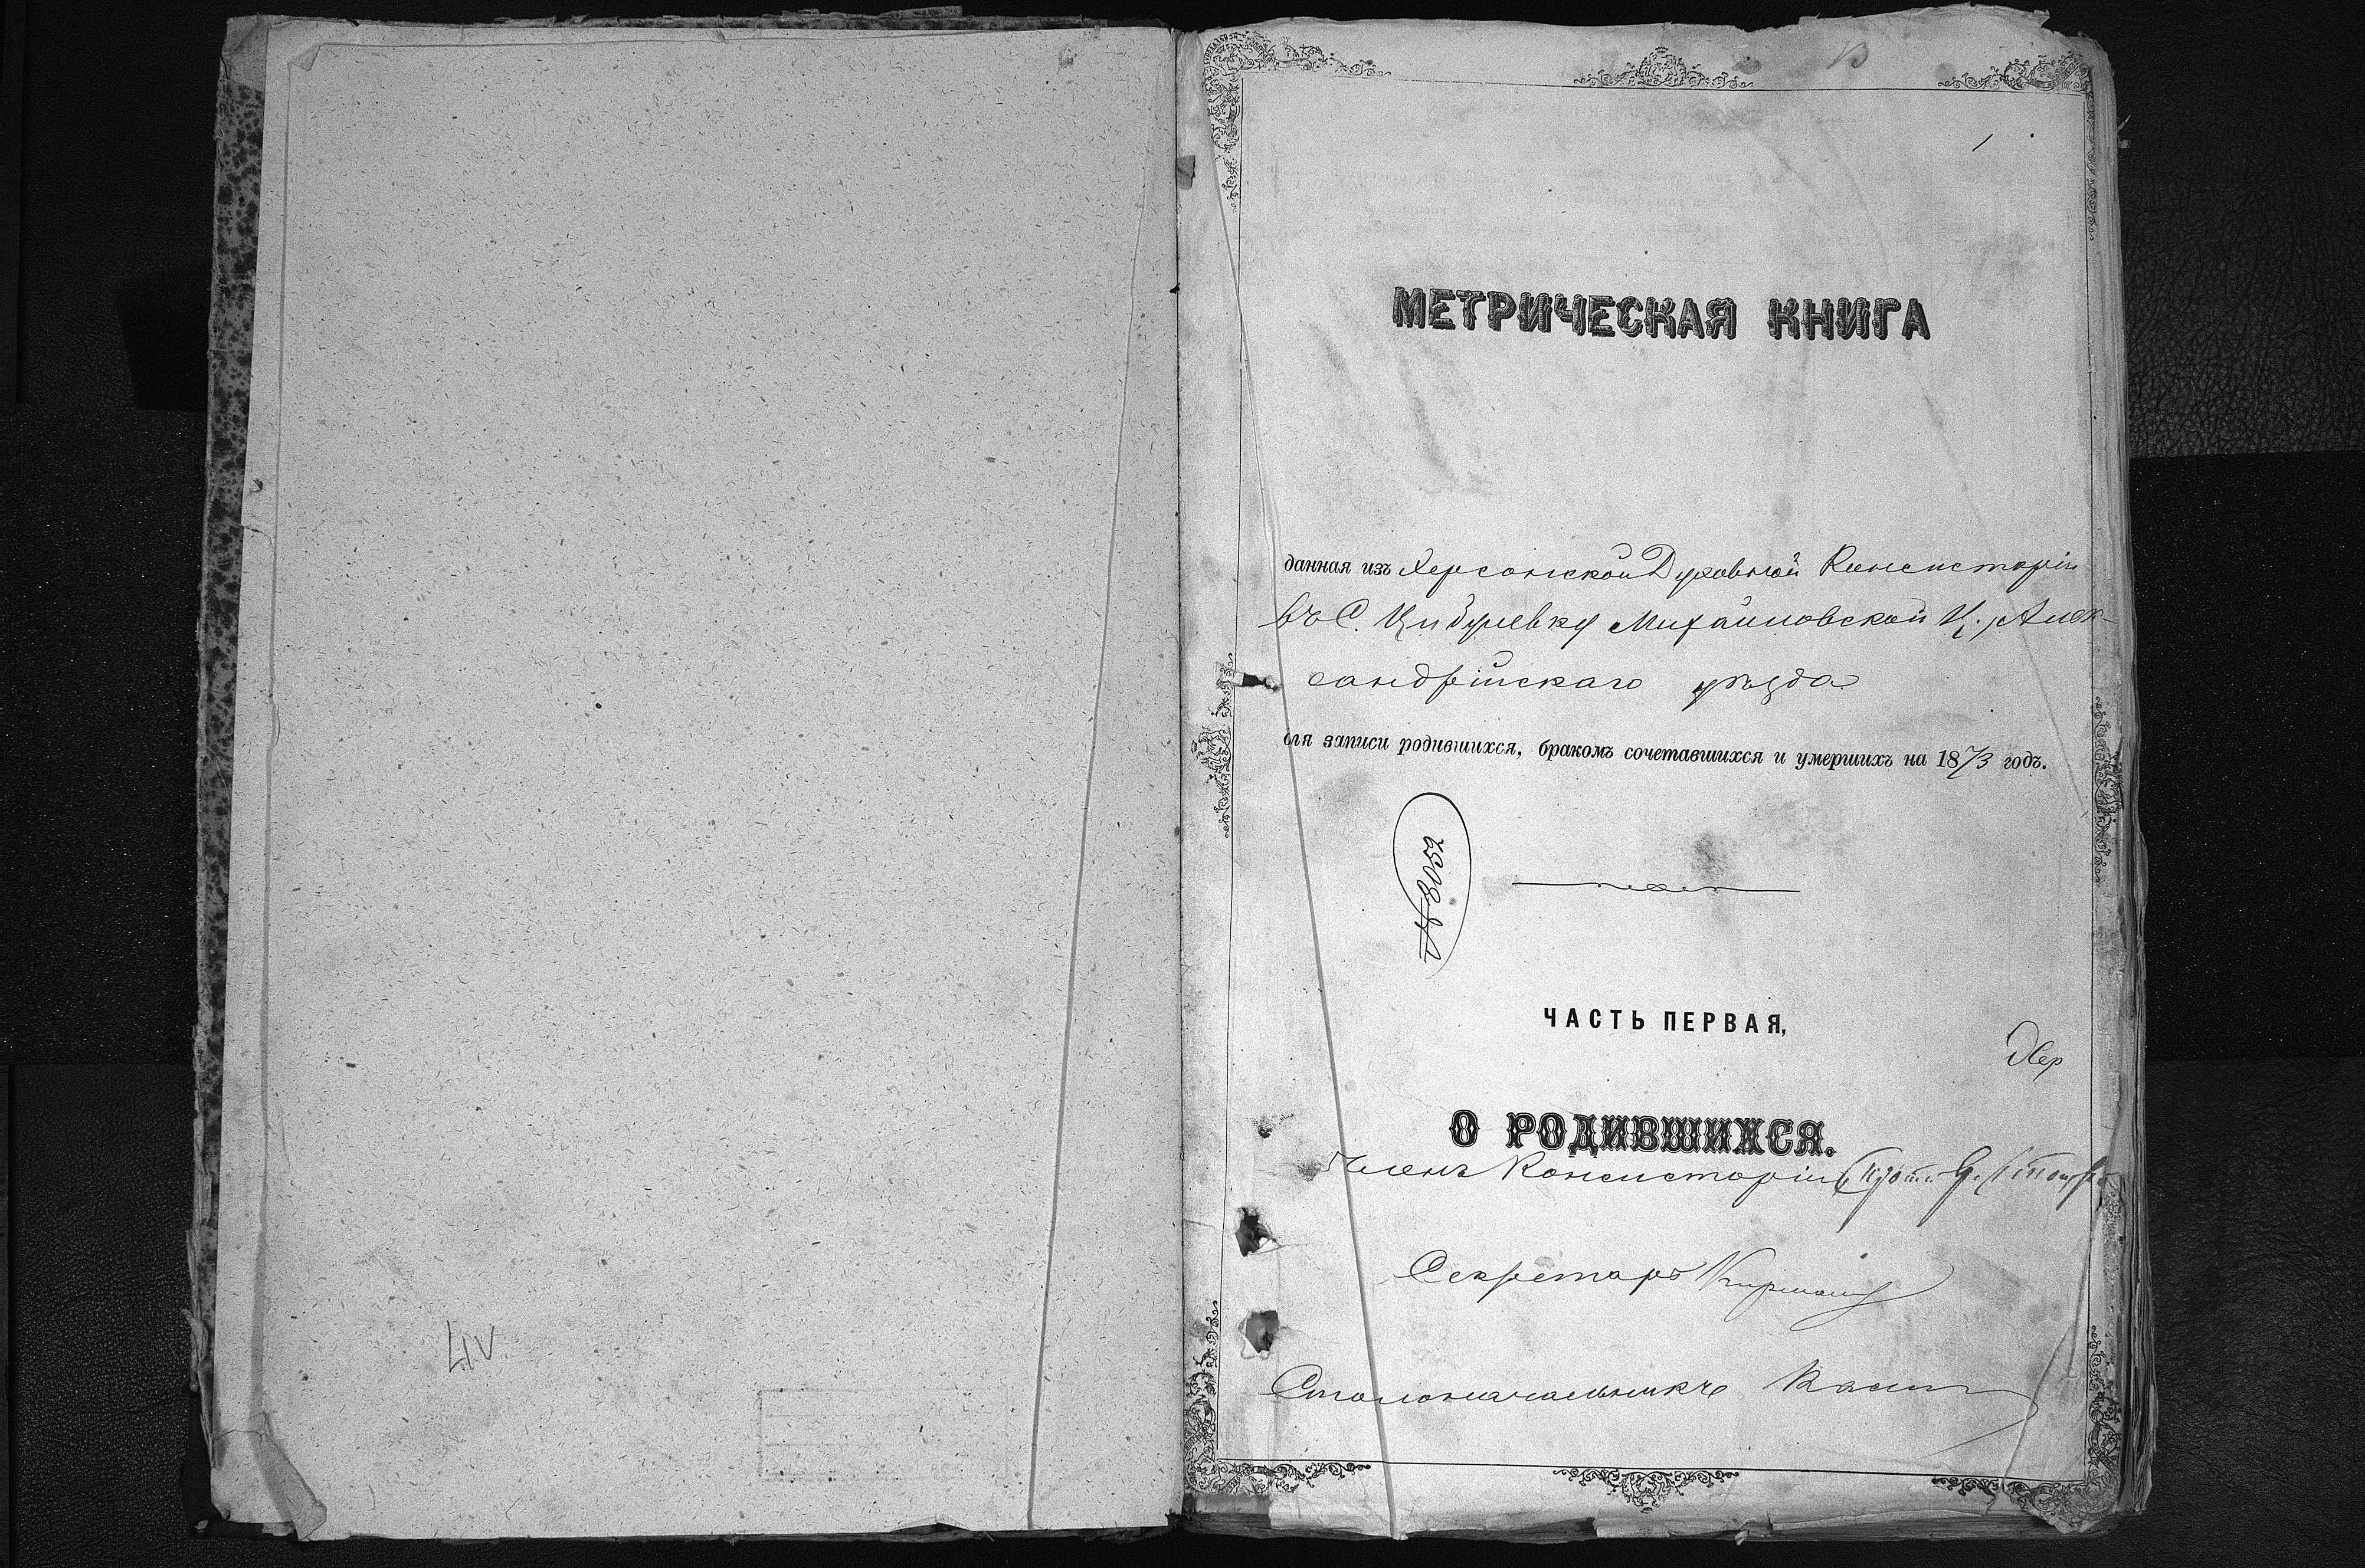 1
МЕТРИЧЕСКАЯ КНИГА
данная изъ Херсонской Духовной Консисторіи
въ С. Цибулевку Михайловской Ц., Алек-
сандрійскаго уѣзда
для записи родившихся, бракомъ сочетавшихся и умершихъ на 1873 годъ.
№ 8052
ЧАСТЬ ПЕРВАЯ,
Хер
О РОДИВШИХСЯ.
Членъ Консисторіи Прот.
Секретарь
Столоначальникъ
LIV